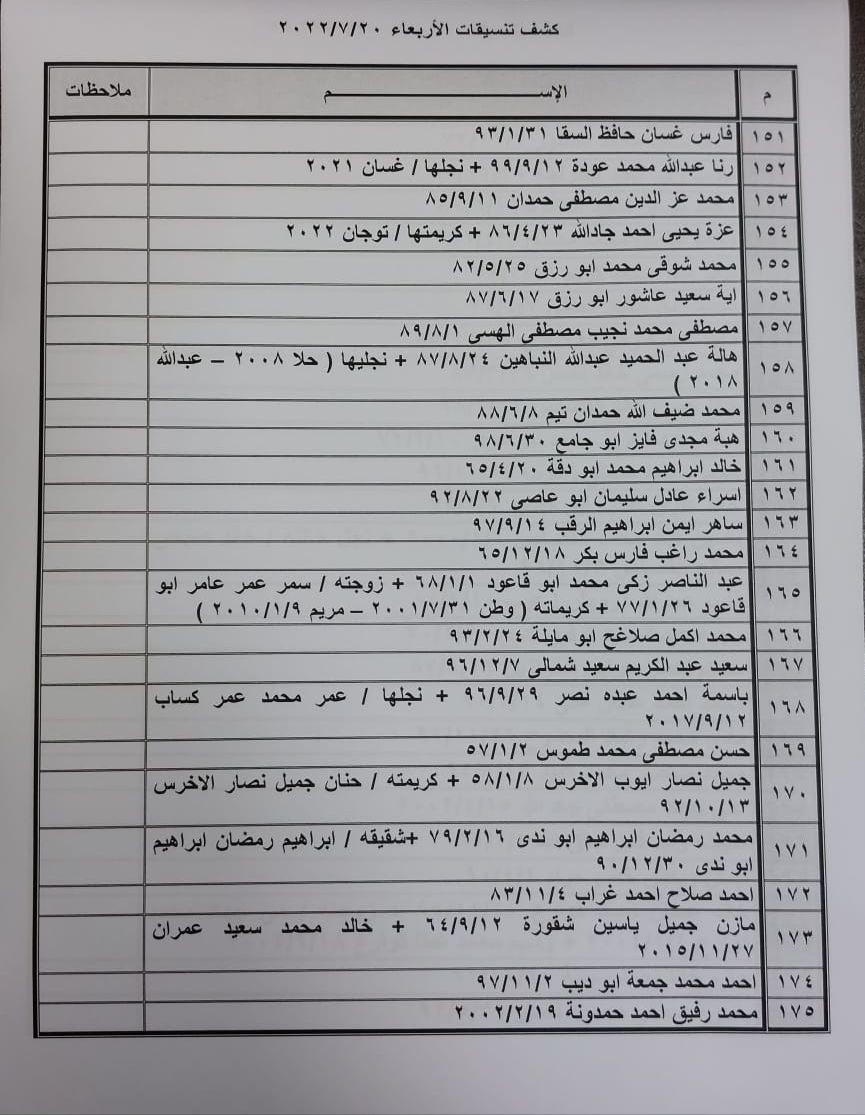 كشف تنسيقات الأربعاء ٢٠٢٢/٧/٢٠
م الإســـــــم ملاحظات
١٥١ فارس غسان حافظ السقا ٩٣/١/٣١
١٥٢ رنا عبدالله محمد عودة ٩٩/٩/١٢ + نجلها / غسان ٢٠٢١
١٥٣ محمد عز الدين مصطفى حمدان ٨٥/٩/١١
١٥٤ عزة يحيى احمد جادالله ٨٦/٤/٢٣ + كريمتها / توجان ٢٠٢٢
١٥٥ محمد شوقى محمد ابو رزق ٨٢/٥/٢٥
١٥٦ اية سعيد عاشور ابو رزق ٨٧/٦/١٧
١٥٧ مصطفى محمد نجيب مصطفى الهسى ٨٩/٨/١
١٥٨ هالة عبد الحميد عبدالله النباهين ٨٧/٨/٢٤ + نجليها ( حلا ٢٠٠٨ – عبدالله
٢٠١٨ )
١٥٩ محمد ضيف الله حمدان تيم ٨٨/٦/٨
١٦٠ هبة مجدى فايز ابو جامع ٩٨/٦/٣٠
١٦١ خالد ابراهيم محمد ابو دقة ٦٥/٤/٢٠
١٦٢ اسراء عادل سليمان ابو عاصى ٩٢/٨/٢٢
١٦٣ ساهر ايمن ابراهيم الرقب ٩٧/٩/١٤
١٦٤ محمد راغب فارس بكر ٦٥/١٢/١٨
١٦٥ عبد الناصر زكى محمد ابو قاعود ٦٨/١/١ + زوجته / سمر عمر عامر ابو
قاعود ٧٧/١/٢٦ + كريماته ( وطن ٢٠٠١/٧/٣١ – مريم ٢٠١٠/١/٩ )
١٦٦ محمد اكمل صلاغح ابو مايلة ٩٣/٢/٢٤
١٦٧ سعيد عبد الكريم سعيد شمالى ٩٦/١٢/٧
١٦٨ باسمة احمد عبده نصر ٩٦/٩/٢٩ + نجلها / عمر محمد عمر كساب
٢٠١٧/٩/١٢
١٦٩ حسن مصطفى محمد طموس ٥٧/١/٢
١٧٠ جميل نصار ايوب الاخرس ٥٨/١/٨ + كريمته / حنان جميل نصار الاخرس
٩٢/١٠/١٣
١٧١ محمد رمضان ابراهيم ابو ندى ٧٩/٢/١٦ +شقيقه / ابراهيم رمضان ابراهيم
ابو ندى ٩٠/١٢/٣٠
١٧٢ احمد صلاح احمد غراب ٨٣/١١/٤
١٧٣ مازن جميل ياسين شقورة ٦٤/٩/١٢ + خالد محمد سعيد عمران
٢٠١٥/١١/٢٧
١٧٤ احمد محمد جمعة ابو ديب ٩٧/١١/٢
١٧٥ محمد رفيق احمد حمدونة ٢٠٠٢/٢/١٩